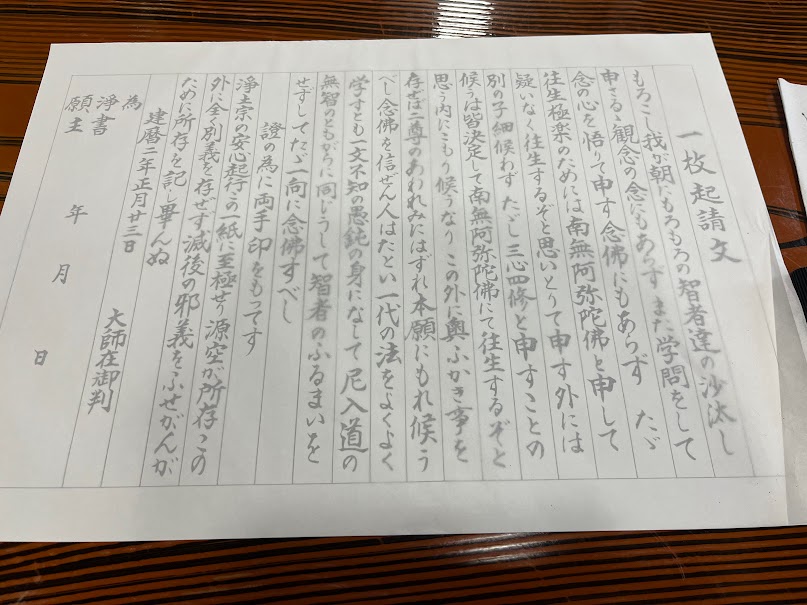 一枚起請文
もろこし我が朝にもろもろの智者達の沙汰し
申さるゝ観念の念にもあらずまた学問をして
念の心を悟りて申す念佛にもあらず たゞ
往生極楽のためには南無阿弥陀佛と申して
疑いなく往生するぞと思いとりて申す外には
別の子細候わず たゞし三心四修と申すことの
候うは皆決定して南無阿弥陀佛にて往生するぞと
思う内にこもり候うなり この外に奥ふかき事を
存ぜば二尊のあわれみにはずれ本願にもれ候う
べし 念佛を信ぜん人はたとい一代の法をよくよく
学すとも一文不知の愚鈍の身になして尼入道の
無智のともがらに同じうして智者のふるまいを
せずしてたゞ一向に念佛すべし
證の為に両手印をもってす
浄土宗の安心起行この一紙に至極せり源空が所存この
外に全く別義を存ぜず滅後の邪義をふせがんが
ために所存を記し畢んぬ
建暦二年正月廿三日 大師在御判
為
浄書
願主
年 月 日